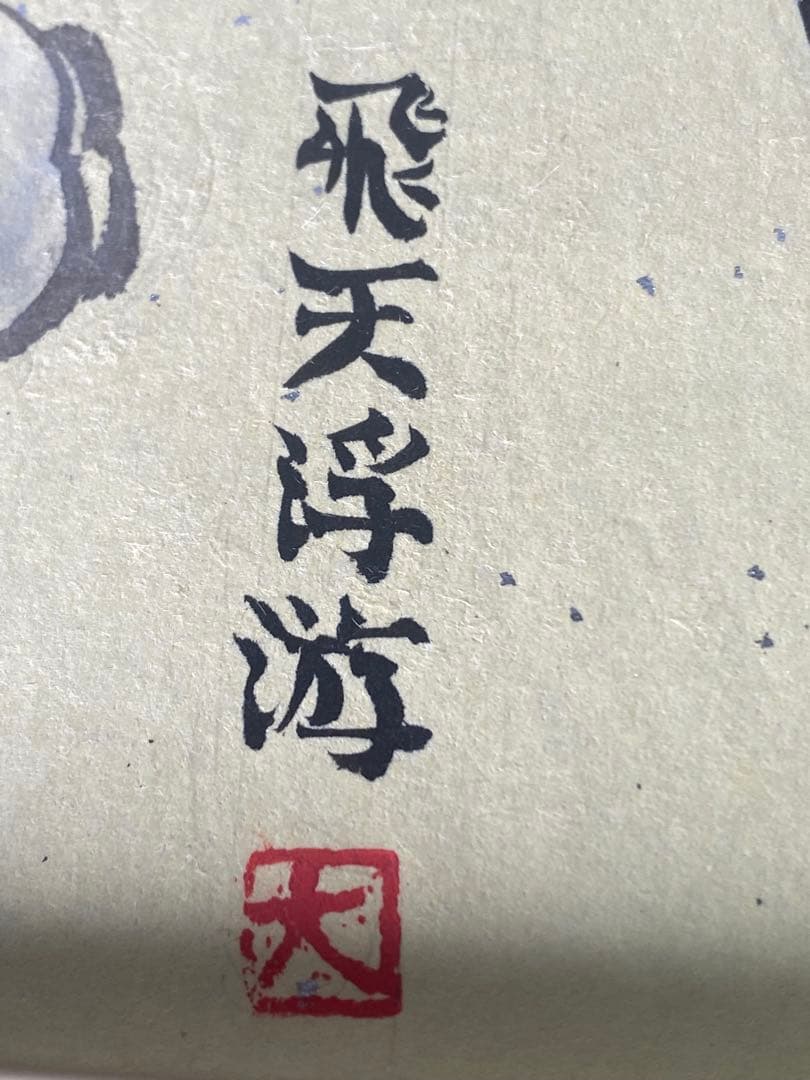 飛天浮游